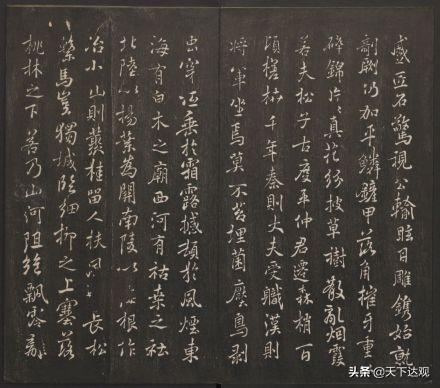 蹙匠石驚視公輸眩目雕鐫始就
剞劂仍加平鱗鏟甲落角摧牙重〻
碎錦片〻真花紛披草樹散亂烟霞
若夫松子古度平仲君遷森梢百
頃槎枿千年秦則大夫受職漢則
將軍坐焉莫不苔埋菌壓鳥剝
虫穿低垂於霜露撼頓於風煙東
海有白木之廟西河有枯桑之社
北陸以楊葉為關南陵以梅根作
冶小山則叢桂留人扶風〻長松
繫馬豈獨城臨細柳之上塞落
桃林之下若乃山河阻絕飄零離
頭条 @天下达观